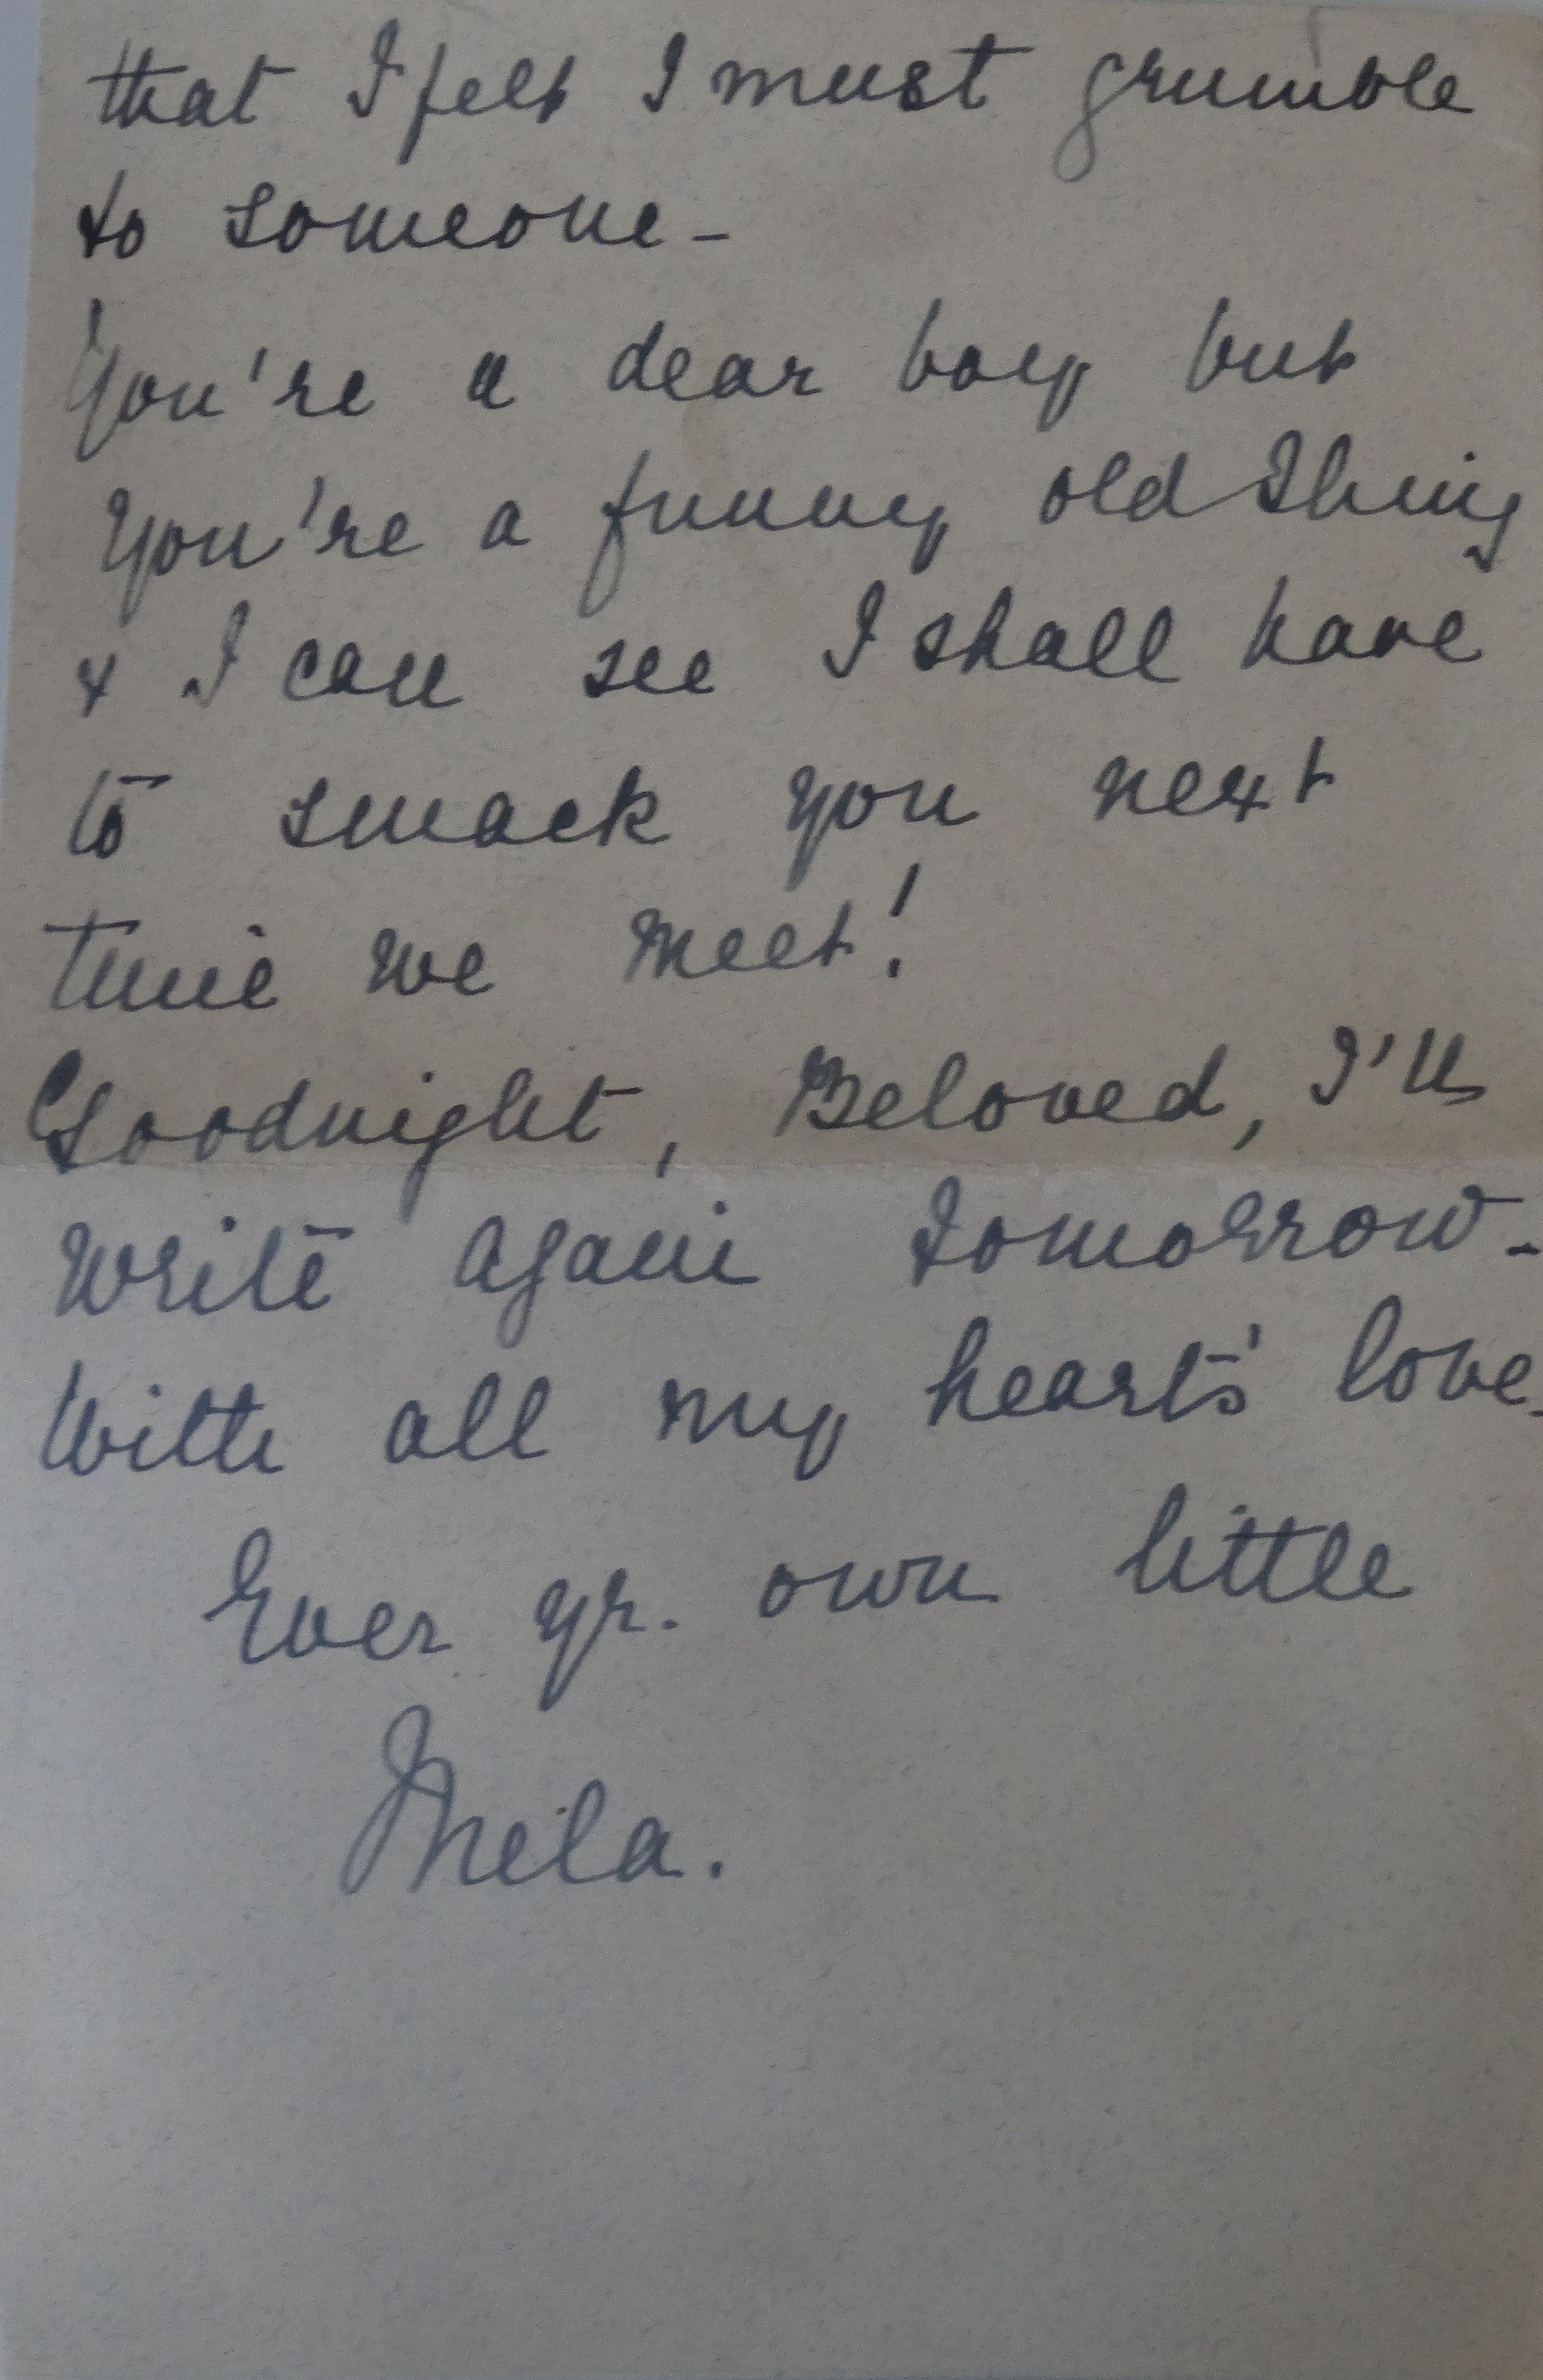 that I felt I must grumble
to someone -
You're a dear boy but
you're a funny old thing
& I can see I shall have
to smack you next
time we meet!
Goodnight, Beloved, I'll
write again tomorrow -
With all my heart's love -
Ever yr. own little